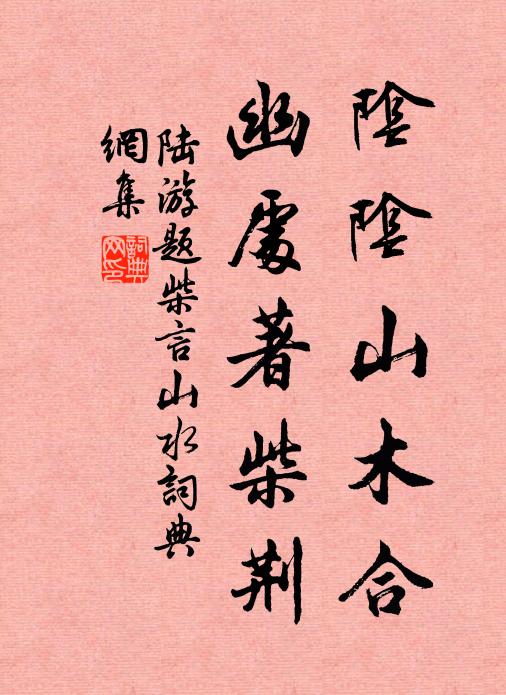 陰陰山木合
幽處著柴荆
陆游题柴言山水詞典
網集
詞典
网印